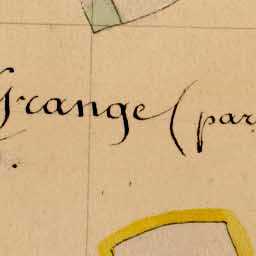 Grange (par